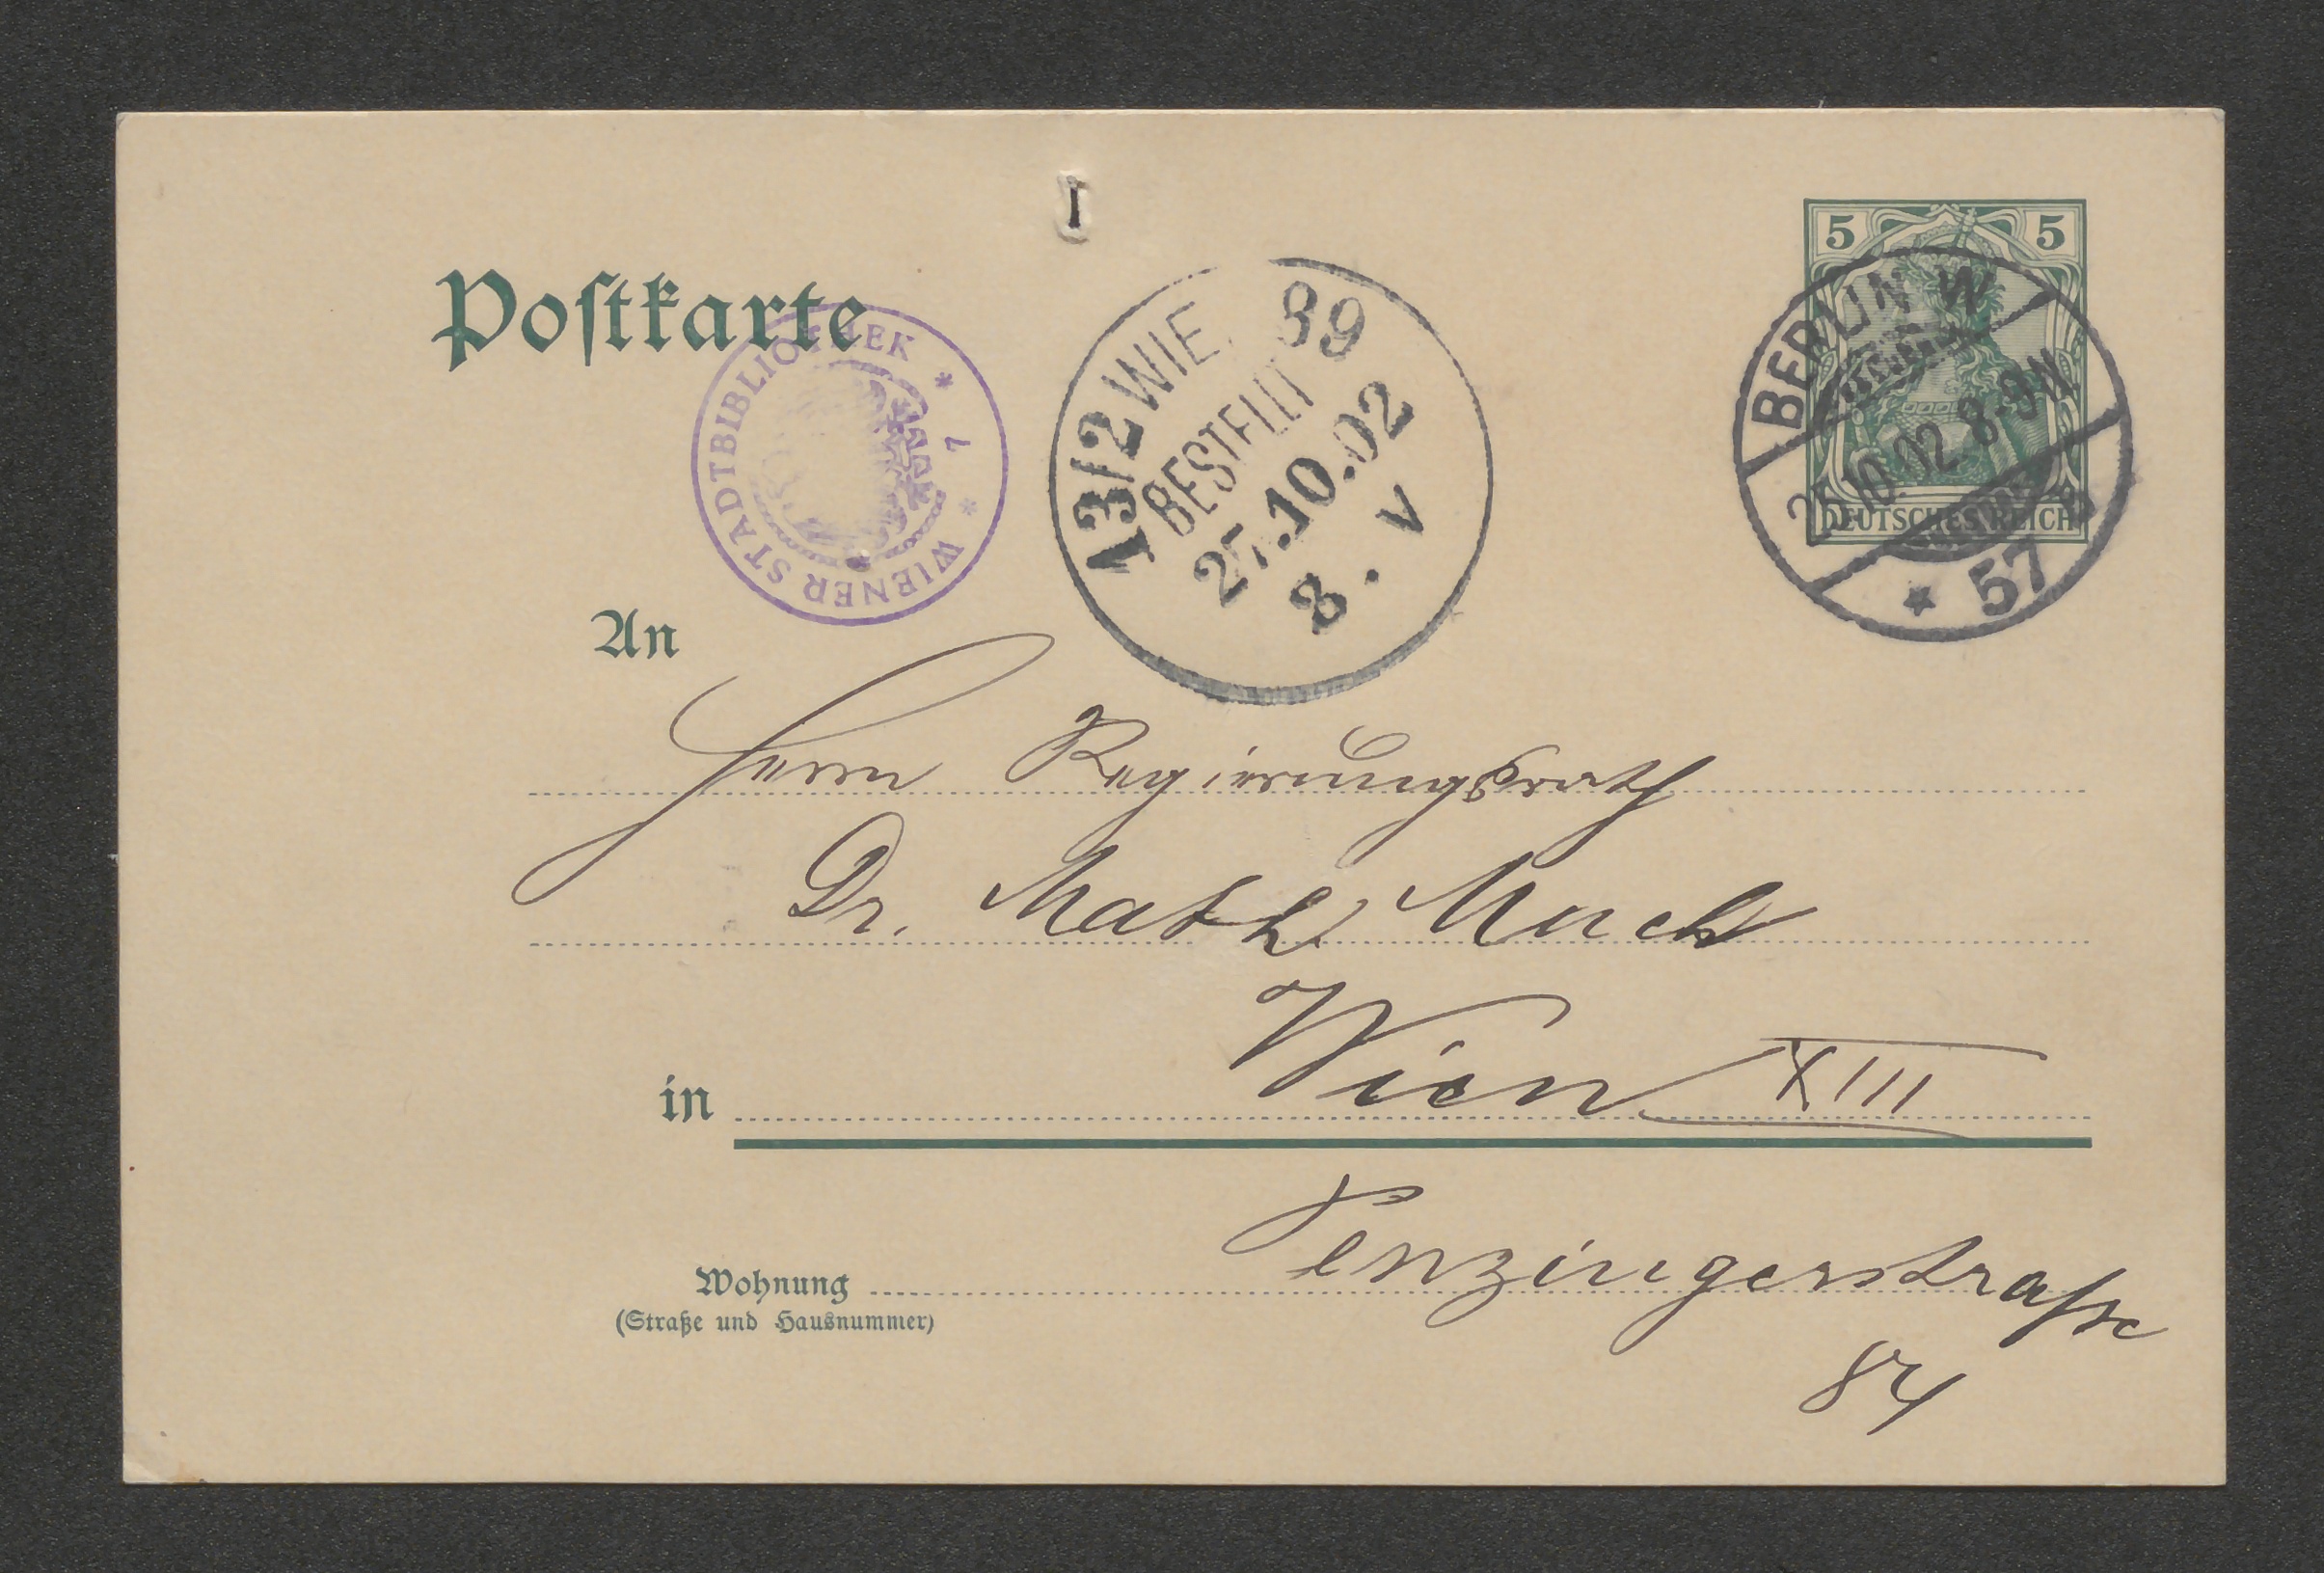 5 5
DEUTSCHES REICH
BERLIN W
25.10.02. 8-9N
* 57
Postkarte
WIENER STADTBIBLIOTHEK * 1 *
13/2 WIE 89
BESTELLT
27.10.02
8. V
An
Herrn Regierungsrath
Dr. Math Much
in Wien XIII
Penzingerstraße
Wohnung
(Straße und Hausnummer)
84